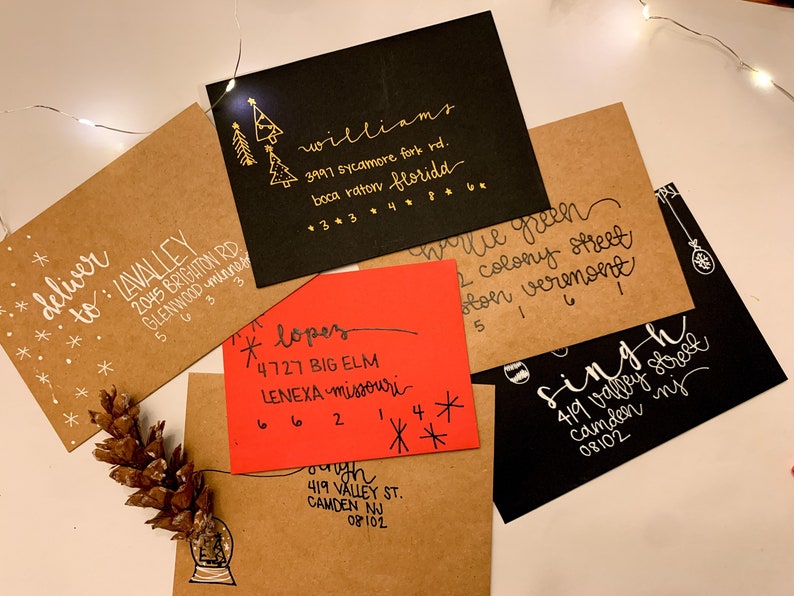 williams
3997 sycamore fork rd.
boca raton florida
3 3 4 8 6
deliver
to:
LAVALLEY
2045 BRIGHTON RD
GLENWOOD
5 6 3 3
green
2 colony street
vermont
5 1 6 1
lopez
4727 BIG ELM
LENEXA missouri
6 6 2 1 4
singh
419 valley street
camden nj
08102
singh
419 VALLEY ST.
CAMDEN NJ
08102